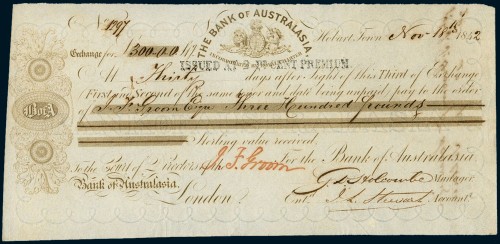 No 1497
THE BANK OF AUSTRALASIA
Hobart Town Nov 18th 1852
Exchange for £300.0.0
ISSUED AT PER CENT PREMIUM.
At Thirty days after Sight of this Third of Exchange
First and Second of the same tenor and date being unpaid, pay to the order
of J F Groom Esqr Three Hundred Pounds
Sterling value received.
BofA
To the Court of Directors of the J. F. Groom For the Bank of Australasia
Bank of Australasia, Manager
London. Entd. Accountt.